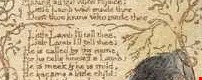 Little Lamb who made thee
Dost thou know who made thee
Little Lamb I'll tell thee,
Little Lamb I'll tell thee;
He is called by thy name,
For he calls himself a Lamb:
He is meek & he is mild,
He became a little child: